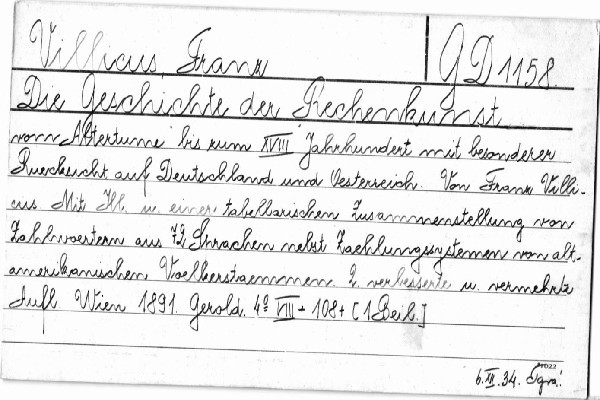 Villicus, Franz
GD 1158.
Die Geschichte der Rechenkunst
vom Altertume bis zum XVIII Jahrhundert mit besonderer
Ruecksicht auf Deutschland und Oesterreich. Von Franz Villi-
cus Mit Ill. u. einer tabellarischen Zusammenstellung von
Zahlwoertern aus 72 Sprachen nebst Zaehlungssystemen von alt-
amerikanischen Voelkerstaemmen. 2. verbesserte u. vermehrte
Aufl. Wien 1891. Gerold. 4º VIII + 108 + [1 Beil.]
6. XII. 34.